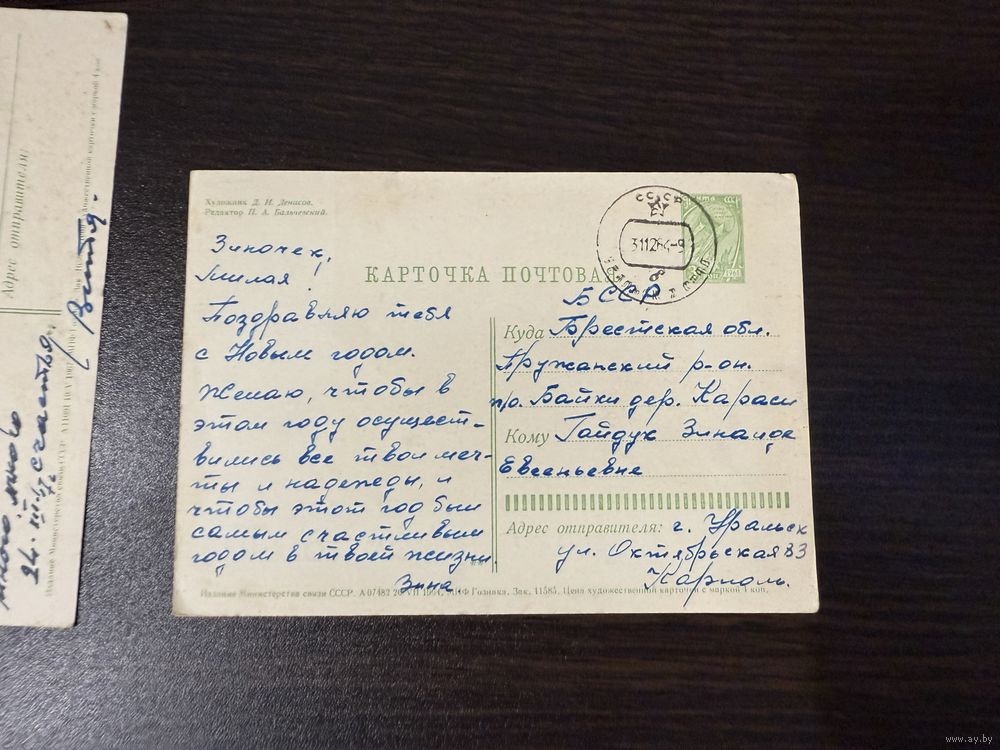 Художник Д. И. Денисов.
Редактор П. А. Бальчевский.
СССР
311264-9
КАРТОЧКА ПОЧТОВАЯ
Зиночек,
Милая!
Поздравляю тебя
с Новым годом.
Желаю, чтобы в
этом году осущест-
вились все твои меч-
ты и надежды, и
чтобы этот год был
самым счастливым
годом в твоей жизни
Зина
БССР
Куда Брестская обл.
Пружанский р-он.
п/о. Байки дер. Караси
Кому Гайдук Зинаиде
Евгеньевне
Адрес отправителя: г. Уральск
ул. Октябрьская 83
Карполь.
Издание Министерства связи СССР. А 07482 VII 1964. Гознака. Зак. 11585. Цена художественной карточки с маркой 4 коп.
Адрес отправителя:
много
счастья.
Витя.
Издание Министерства связи СССР.
карточки с маркой 4 коп.
www.ay.by